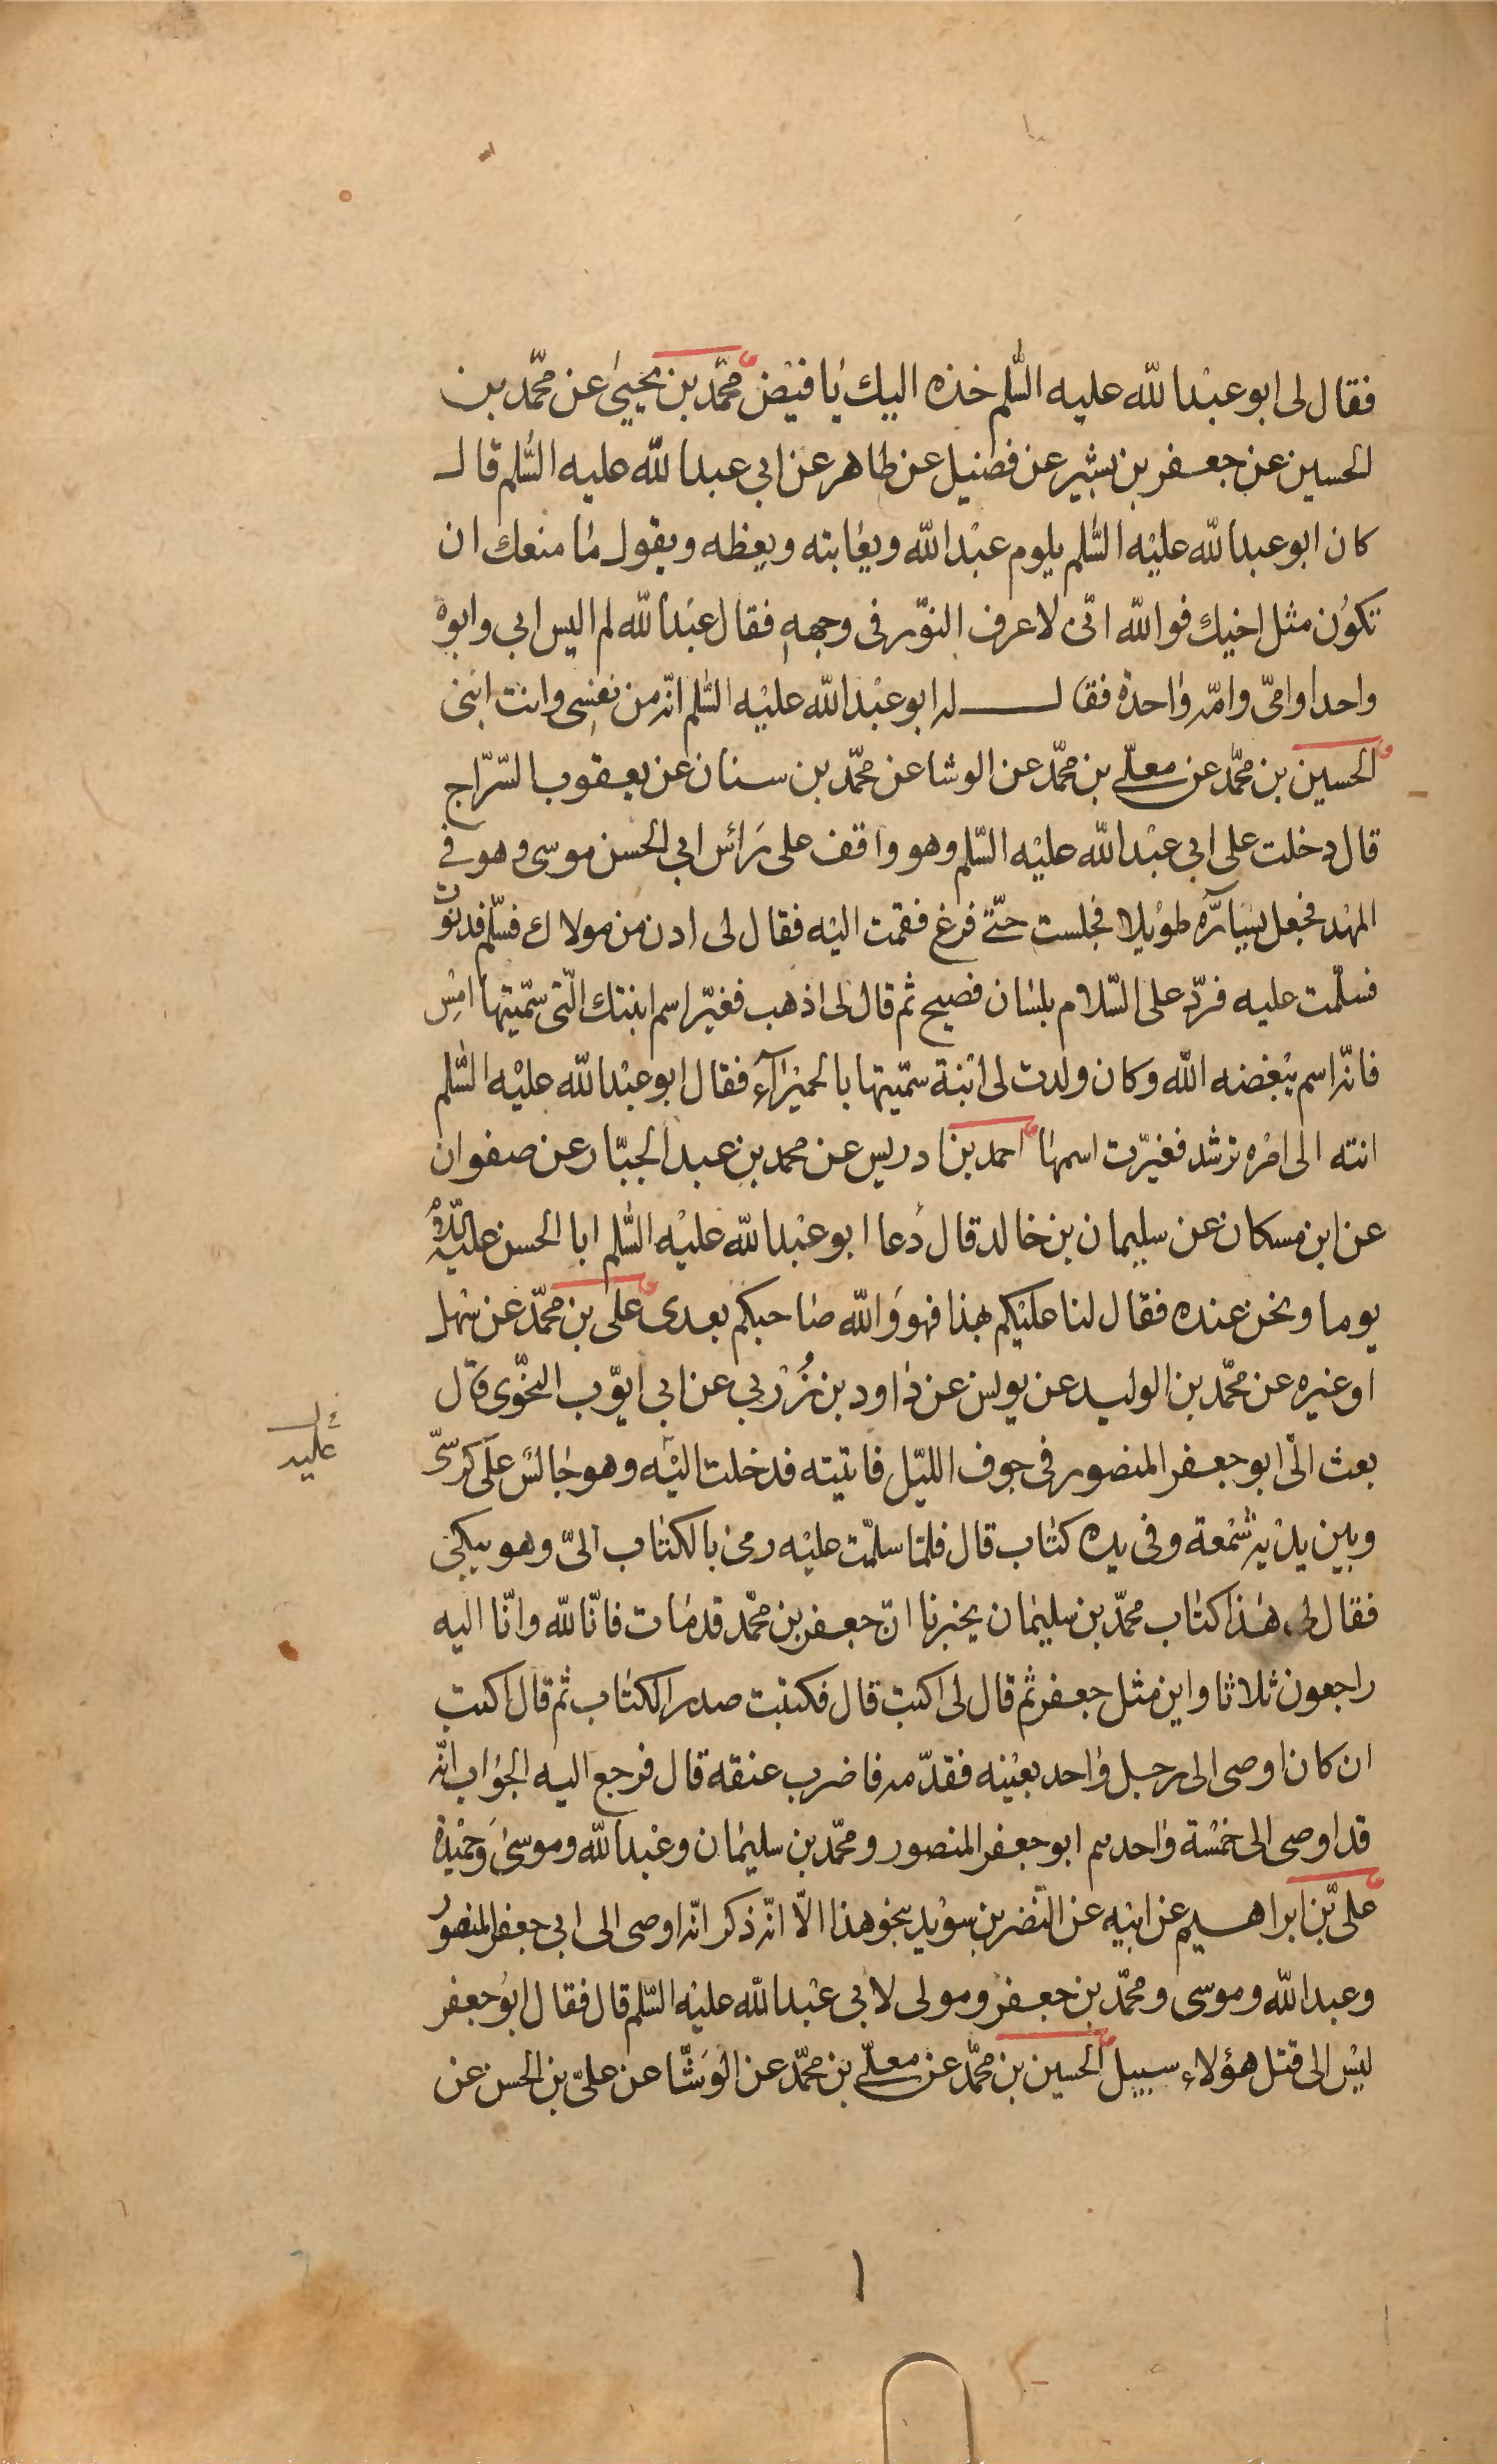 فقال لى ابو عبد الله عليه السّلم خذه اليك يا فيض محمّد بن يحيى عن محمّد بن
الحسين عن جعفر بن بشير عن فضيل عن طاهر عن ابى عبد الله عليه السّلم قال
كان ابو عبد الله عليه السّلم يلوم عبد الله ويعاتبه ويعظه ويقول ما منعك ان
تكون مثل اخيك فو الله انّى لاعرف النّور فى وجهه فقال عبد الله لم اليس ابى وابوه
واحدا وامّى وامّه واحدة فقال له ابو عبد الله عليه السّلم انّه من نفسى وانت ابنى
الحسين بن محمّد عن معلّى بن محمّد عن الوشا عن محمّد بن سنان عن يعقوب السّرّاج
قال دخلت على ابى عبد الله عليه السّلم وهو واقف على رأس ابى الحسن موسى وهو فى
المهد فجعل يسارّه طويلا فجلست حتّى فرغ فقمت اليه فقال لى ادن من مولاك فسلّم فدنوت
فسلّمت عليه فردّ على السّلام بلسان فصيح ثم قال لى اذهب فغيّر اسم ابنتك الّتى سمّيتها امس
فانّه اسم يبغضه الله وكان ولدت لى ابنة سمّيتها بالحميراء فقال ابو عبد الله عليه السّلم
انته الى امره ترشد فغيّرت اسمها احمد بن ادريس عن محمد بن عبد الجبّار عن صفوان
عن ابن مسكان عن سليمان بن خالد قال دعا ابو عبد الله عليه السّلم ابا الحسن عليه السّلم
يوما ونحن عنده فقال لنا عليكم بهذا فهو والله صاحبكم بعدى على بن محمّد عن سهل
او غيره عن محمّد بن الوليد عن يونس عن داود بن زربى عن ابى ايّوب النّحوى قال
بعث الىّ ابو جعفر المنصور فى جوف الليّل فاتيته فدخلت اليه وهو جالس على كرسىّ
عليه
وبين يديه شمعة وفى يده كتاب قال فلمّا سلّمت عليه رمى بالكتاب الىّ وهو يبكى
فقال لى هذا كتاب محمّد بن سليمان يخبرنا انّ جعفر بن محمّد قد مات فانّا لله وانّا اليه
راجعون ثلاثا واين مثل جعفر ثم قال لى اكتب قال فكتبت صدر الكتاب ثم قال اكتب
ان كان اوصى الى رجل واحد بعينه فقدّمه فاضرب عنقه قال فرجع اليه الجواب انّه
قد اوصى الى خمسة واحدهم ابو جعفر المنصور ومحمّد بن سليمان وعبد الله وموسى وحميدة
علىّ بن ابراهيم عن ابيه عن النّضر بن سويد بنحو هذا الّا انّه ذكر انّه اوصى الى ابى جعفر المنصور
وعبد الله وموسى ومحمّد بن جعفر ومولى لابى عبد الله عليه السّلم قال فقال ابو جعفر
ليس الى قتل هؤلاء سبيل الحسين بن محمّد عن معلّى بن محمّد عن الوشّا عن علىّ بن الحسن عن